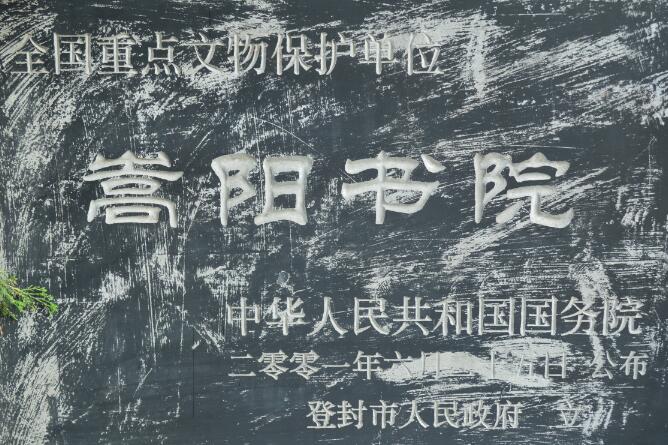 全国重点文物保护单位
嵩阳书院
中华人民共和国国务院
二零零一年六月二十五日 公布
登封市人民政府 立